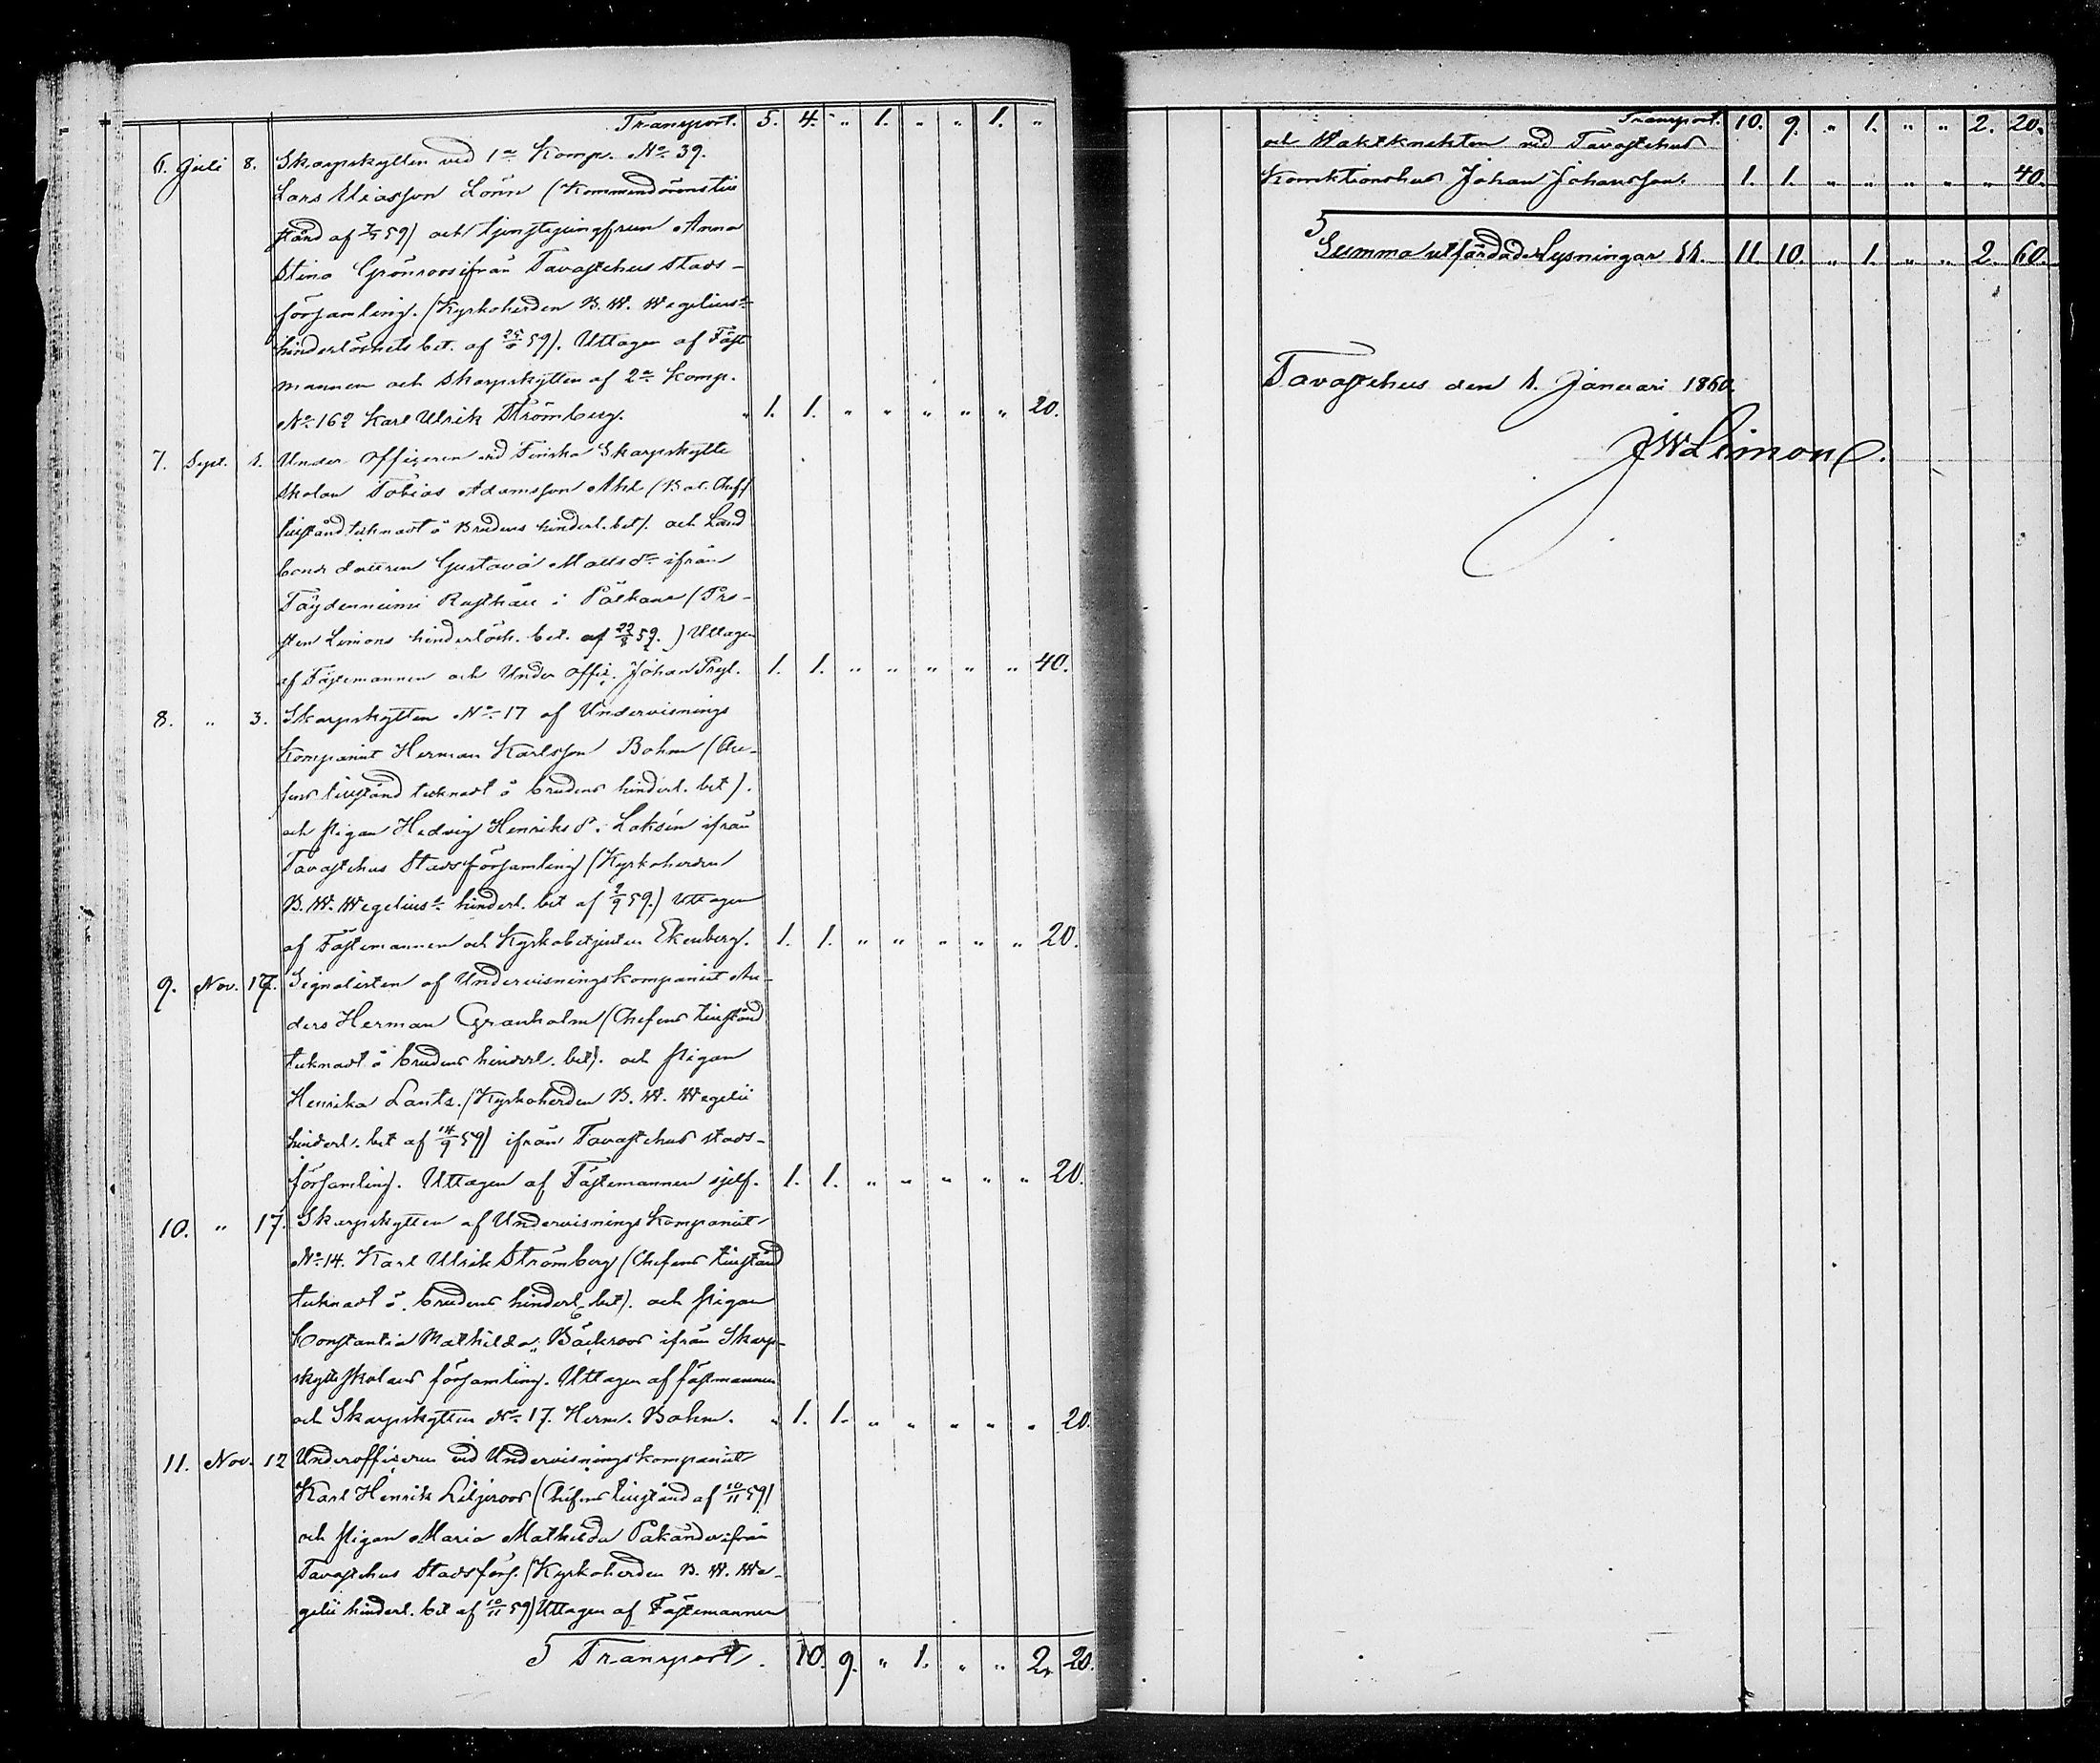 Transport. 5. 4. " 1. " " 1. "
6. Juli 8. Skarpskytten vid 1a Komp. No 39.
Lars Eliasson Lönn (Kommendörens till
stånd af 7/7 59) och tjenstejungfrun Anna
Stina Grönroos ifrån Tavastehus stads-
församling. (Kyrkoherden B. W. Wegelius
hinderlöshets bet. af 25/6 59). Uttagen af Fäst
mannen och skarpskytten af 2a Komp.
No 162 Karl Ulrik Strömberg. " 1. 1. " " " " " 20.
7. Sept. 1. Under officeren vid Finska Skarpskytte
Skolan Tobias Adamsson Ahl (Bat. Chefs
tillstånd teknadt å Brudens hinderl. bet). och Land
bonde dottren Gustava Matts dr ifrån
Töydenniemi Rusthåll i Pälkäne (Pro-
sten Limons hinderlösh. bet. af 22/8 59.) Uttagen
af Fästemannen och Under offic. Johan Pryl. 1. 1. " " " " " 40.
8. " 3. Skarpskytten No 17 af Undervisnings
Kompaniet Herman Karlsson Bohm (Che-
fens tillstånd teknadt å brudens hinderl. bet).
och pigan Hedvig Henriks dr Loksén ifrån
Tavastehus Stadsförsamling (Kyrkoherden
B. W. Wegelius hinderl. bet af 2/9 59.) Uttagen
af Fästemannen och Kyrkobetjenten Ekenberg. 1. 1. " " " " " 20.
9. Nov. 17. Signalisten af Undervisningskompaniet An-
ders Herman Granholm (Chefens tillstånd
teknadt å brudens hinderl. bet). och pigan
Henrika Lantz. (Kyrkoherden B. W. Wegelii
hinderl. bet af 14/9 59) ifrån Tavastehus stads-
församling. Uttagen af Fästemannen sjelf. 1. 1. " " " " " 20.
10. " 17. Skarpskytten af Undervisnings Kompaniet
No 14. Karl Ulrik Strömberg (Chefens tillstånd
teknadt å brudens hinderl. bet). och pigan
Constantia Mathilda Bäckroos ifrån Skarp-
skytteskolans församling. Uttagen af fästmannen
och Skarpskytten No 17. Herm. Bohm. " 1. 1. " " " " " 20.
11. Nov. 12 Underofficeren vid Undervisningskompaniet
Karl Henrik Liljeroos (Chefens tillstånd af 10/11 59)
och pigan Maria Mathilda Pakander ifrån
Tavastehus Stadsförs. (Kyrkoherden B. W. We-
gelii hinderl. bet af 10/11 59) Uttagen af Fästemannen
Transport. 10. 9. " 1. " " 2. 20.
Transport. 10. 9. " 1. " " 2. 20.
och Waktknekten vid Tavastehus
Korrektionshus Johan Johansson. 1. 1. " " " " " 40.
Summa utfärdade Lysningar 11. 11. 10. " 1. " " 2. 60.
Tavastehus den 1. Januari 1860.
JW Limon